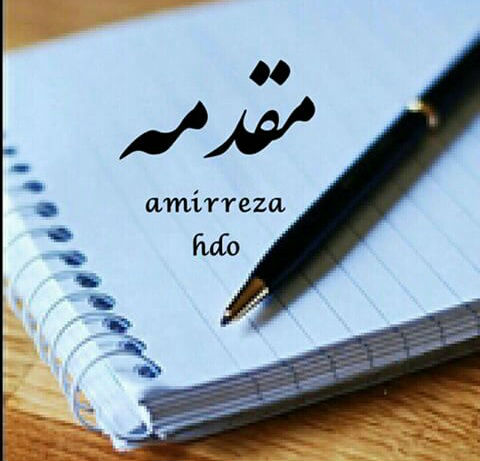 مقدمه
amirreza
hdo